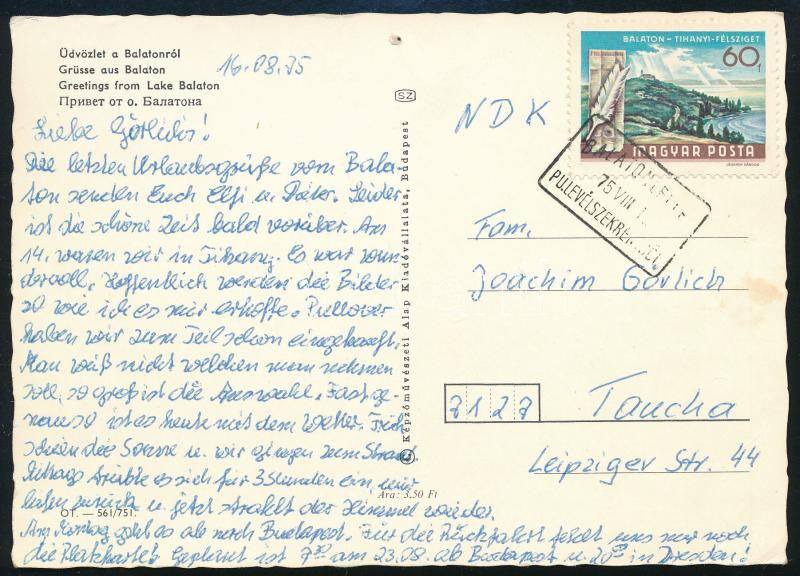 Üdvözlet a Balatonról
Grüsse aus Balaton
Greetings from Lake Balaton
Привет от о. Балатона
16.08.75
Liebe Görlichs!
Die letzten Urlaubsgrüße vom Bala-
ton senden Euch Elfi u. Dieter. Leider
ist die schöne Zeit bald vorüber. Am
14. waren wir in Tihany. Es war wun-
dervoll. Hoffentlich werden die Bilder
so wie ich es mir erhoffe. Pullover
haben wir zum Teil schon eingekauft.
Man weiß nicht welchen man nehmen
soll, so groß ist die Auswahl. Fast ge-
nauso ist es heute mit dem Wetter. Früh
schien die Sonne u. wir gingen zum Strand
Mittags trübte es sich für 3 Stunden ein, wir
liefen zurück u. jetzt strahlt der Himmel wieder.
Am Montag geht es ab nach Budapest. Für die Rückfahrt fehlt uns nur noch
die Platzkarte. Geplant ist 7 am 23.08. ab Budapest u. 20 in Dresden!
Ára: 3,50 Ft
OT. — 561/751.
SZ
© Képzőművészeti Alap Kiadóvállalata, Budapest
BALATON – TIHANYI-FÉLSZIGET
60 f
MAGYAR POSTA
LÉGRÁDY SÁNDOR
75 VIII 1
NDK
Fam.
Joachim Görlich
7127 Taucha
Leipziger Str. 44